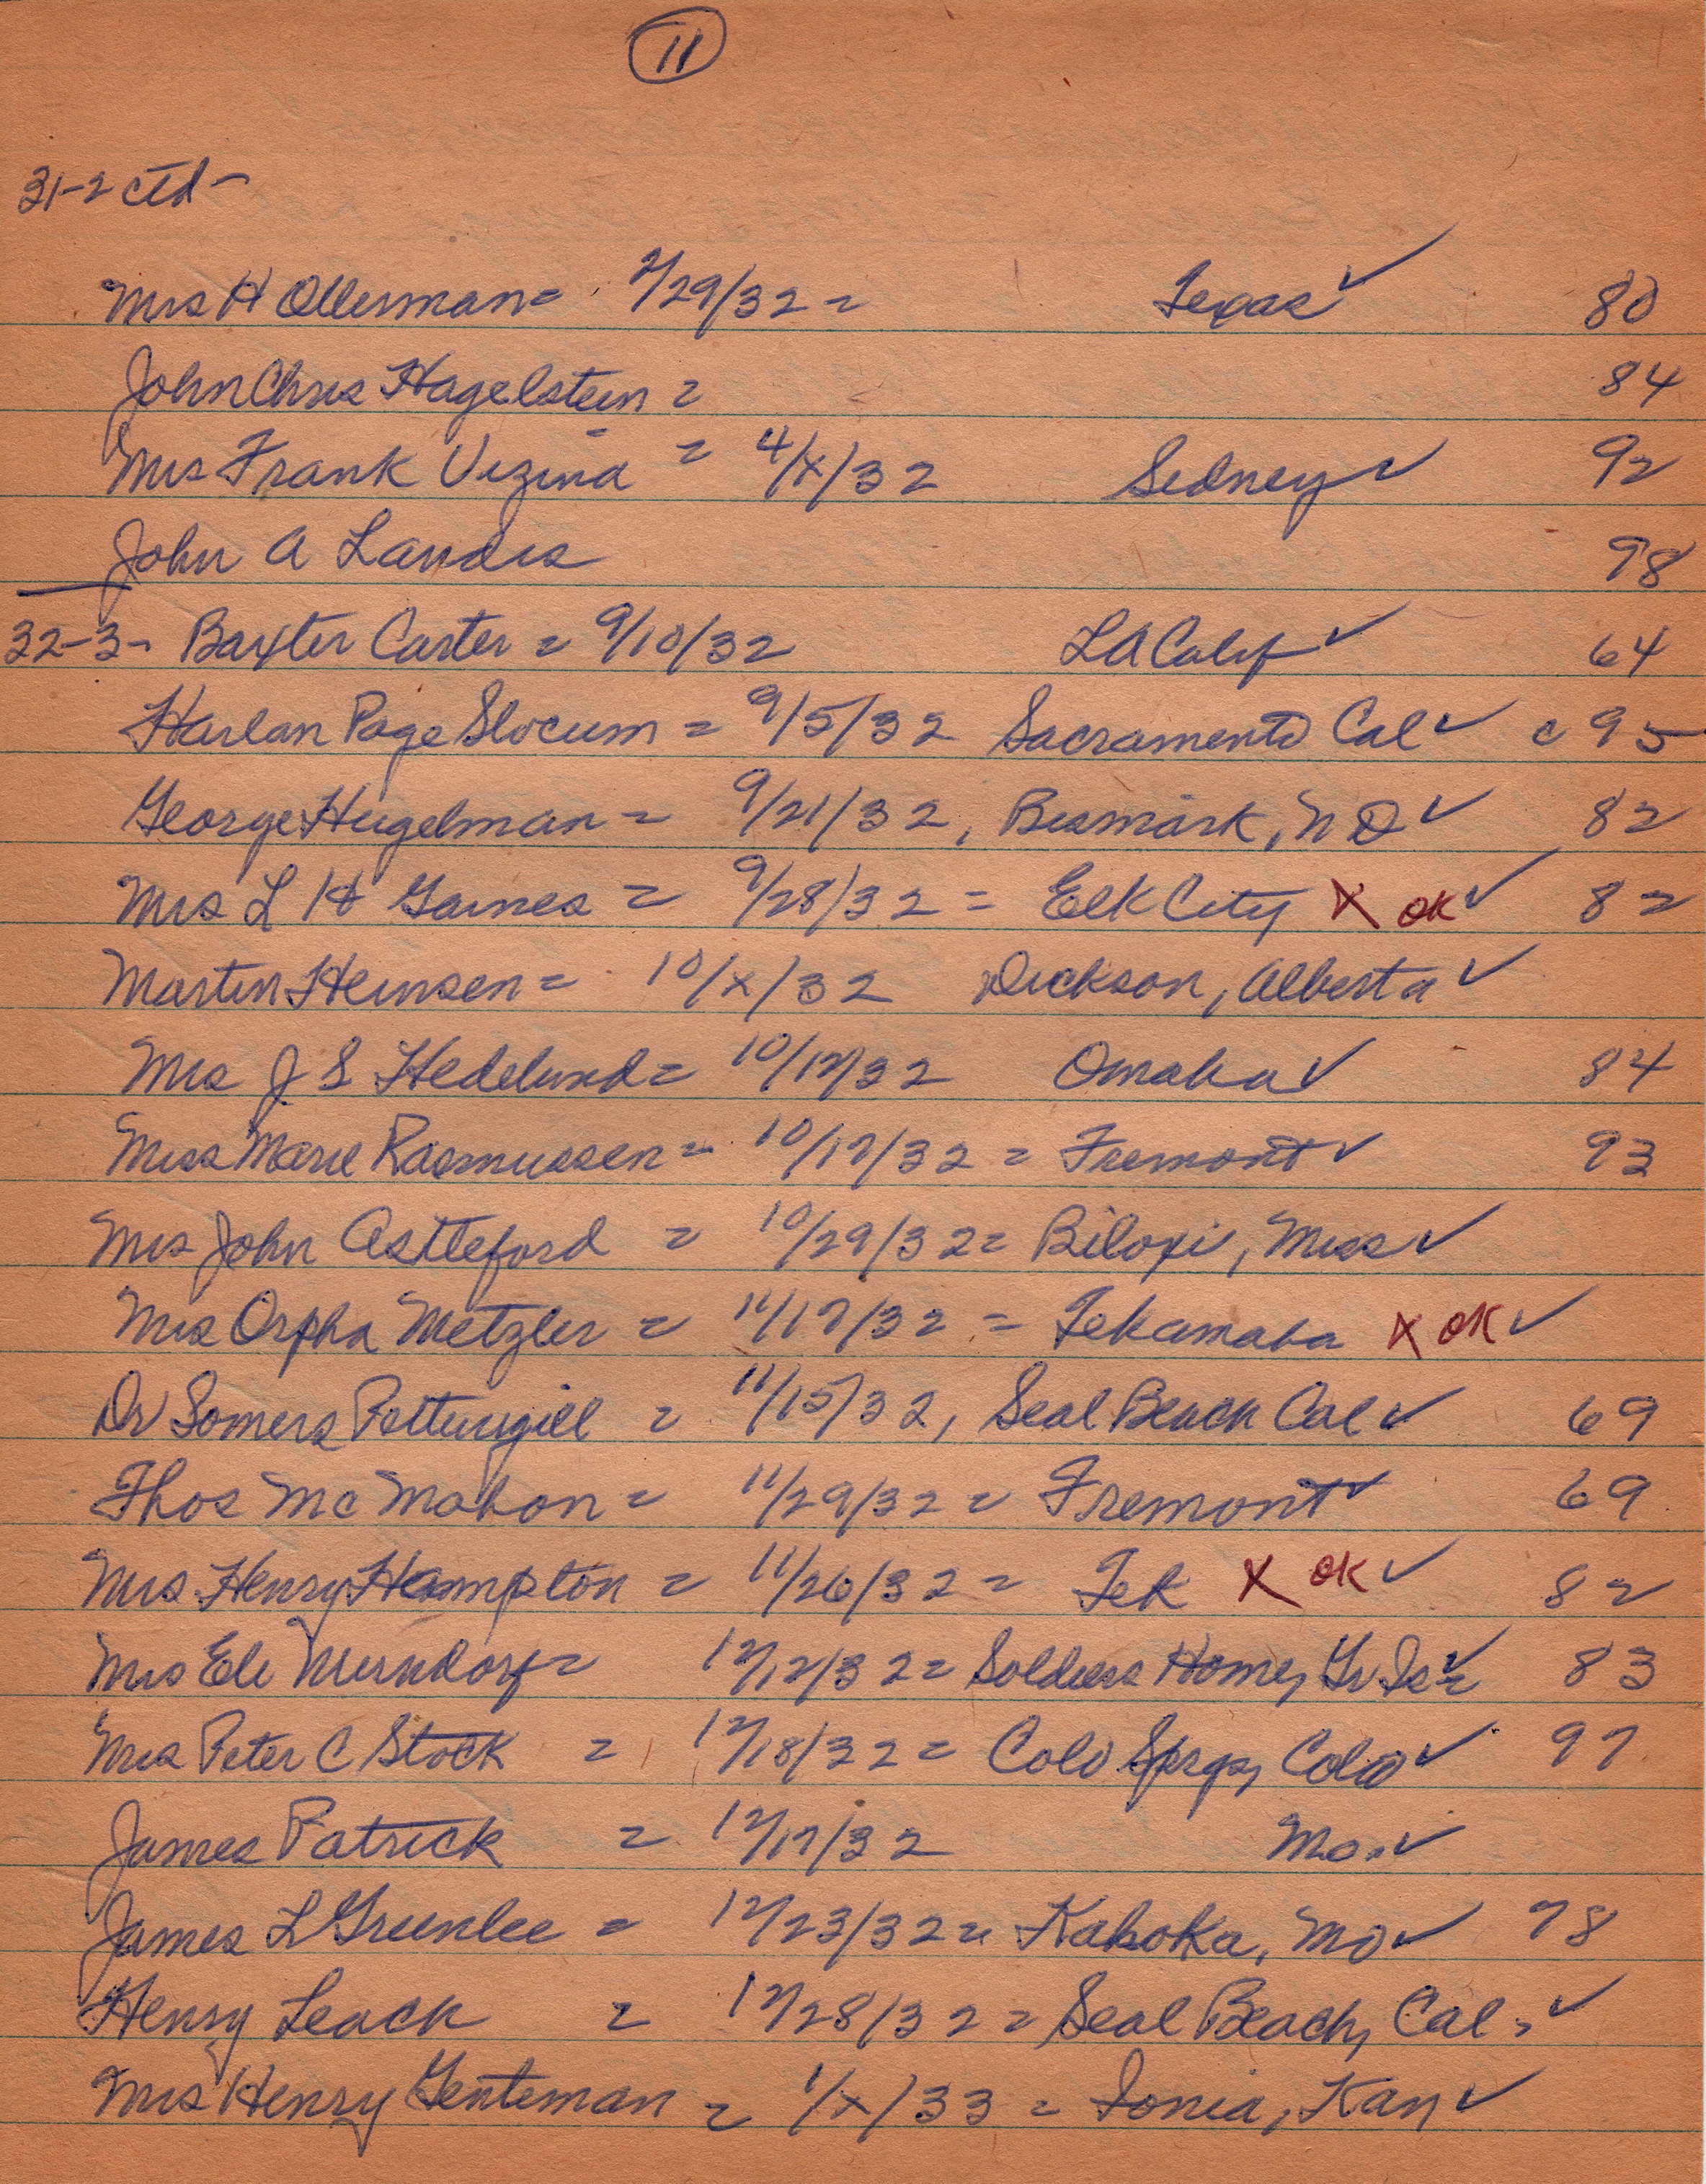 11
31-2 ctd-
Mrs H Ollerman = 2/29/32 = Texas ✓ 80
John Chris Hagelstein = 84
Mrs Frank Vizina = 4/x/32 Sidney ✓ 92
John A Landis 98
32-3- Baxter Carter = 9/10/32 LA Calif ✓ 64
Harlan Page Slocum = 9/5/32 Sacramento Cal ✓ c 95
George Hugelman = 9/21/32, Bismark, N D ✓ 82
Mrs L H Gaines = 9/28/32 = Elk City X OK ✓ 82
Martin Heinsen = 10/x/32 Dickson, Alberta ✓
Mrs J S Hedelund = 10/12/32 Omaha ✓ 84
Miss Marie Rasmussen = 10/17/32 = Fremont ✓ 93
Mrs John Astleford = 10/29/32 = Biloxi, Miss ✓
Mrs Orpha Metzler = 11/17/32 = Tekamaha X OK ✓
Dr Somers Pettengill = 11/15/32, Seal Beach Cal ✓ 69
Thos McMahon = 11/29/32 = Fremont ✓ 69
Mrs Henry Hampton = 11/26/32 = Tek X OK ✓ 82
Mrs Eli = 12/12/32 = Soldiers Home, Gr Is ✓ 83
Mrs Peter C Stock = 12/18/32 = Colo Sprgs, Colo ✓ 97
James Patrick = 12/17/32 Mo. ✓
James L Greenlee = 12/23/32 = Kahoka, Mo ✓ 78
Henry Leach = 12/28/32 = Seal Beach, Cal. ✓
Mrs Henry Genteman = 1/x/33 = Ionia, Kan ✓